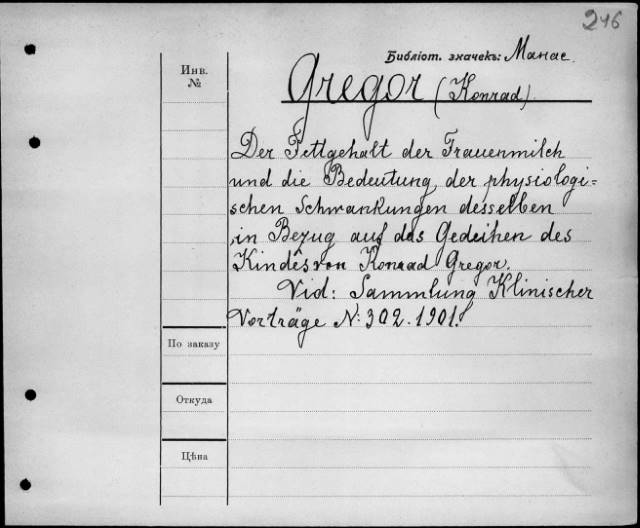 246
Библіот. значекъ: Манае.
Инв.
№
Gregor (Konrad).
Der Fettgehalt der Frauenmilch
und die Bedeutung der physiologi=
schen Schwankungen desselben
in Bezug auf das Gedeihen des
Kindes von Konrad Gregor.
Vid: Sammlung Klinischer
Vorträge N: 302. 1901.
По заказу
Откуда
Цѣна